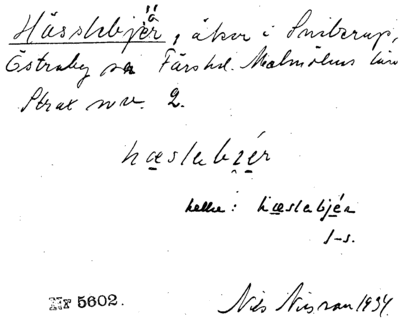 Hässlebjär, åker i Snibarup,
Östraby sn Färs hd. Malmöhus län
Strax nv. 2.
hæslabɪér
heller: hæslabjér
J-s.
Nr 5602.
Nils Nilsson 1934.